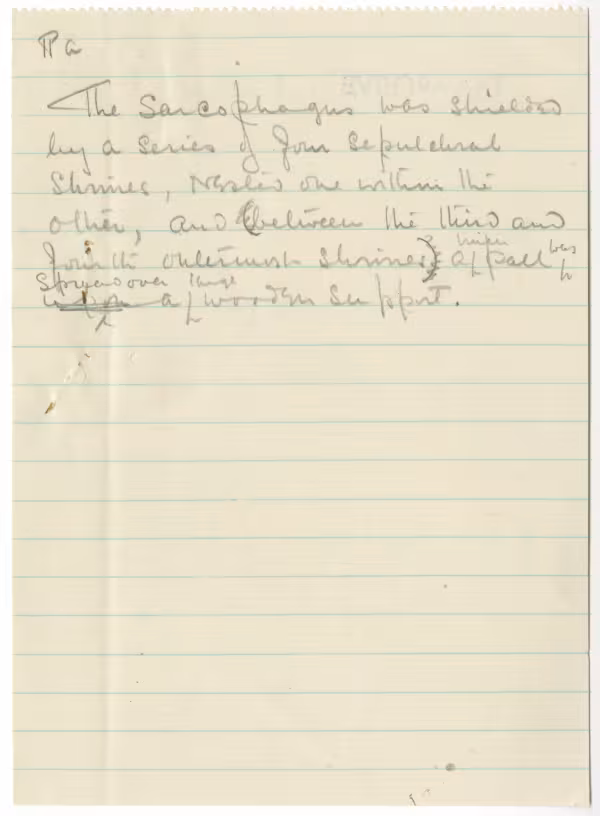 The Sarcophagus was shielded
by a series of four sepulchral
Shrines, nested one within the
other, and (between the third and
fourth outermost shrines) a linen pall was
spread over upon a large wooden support.